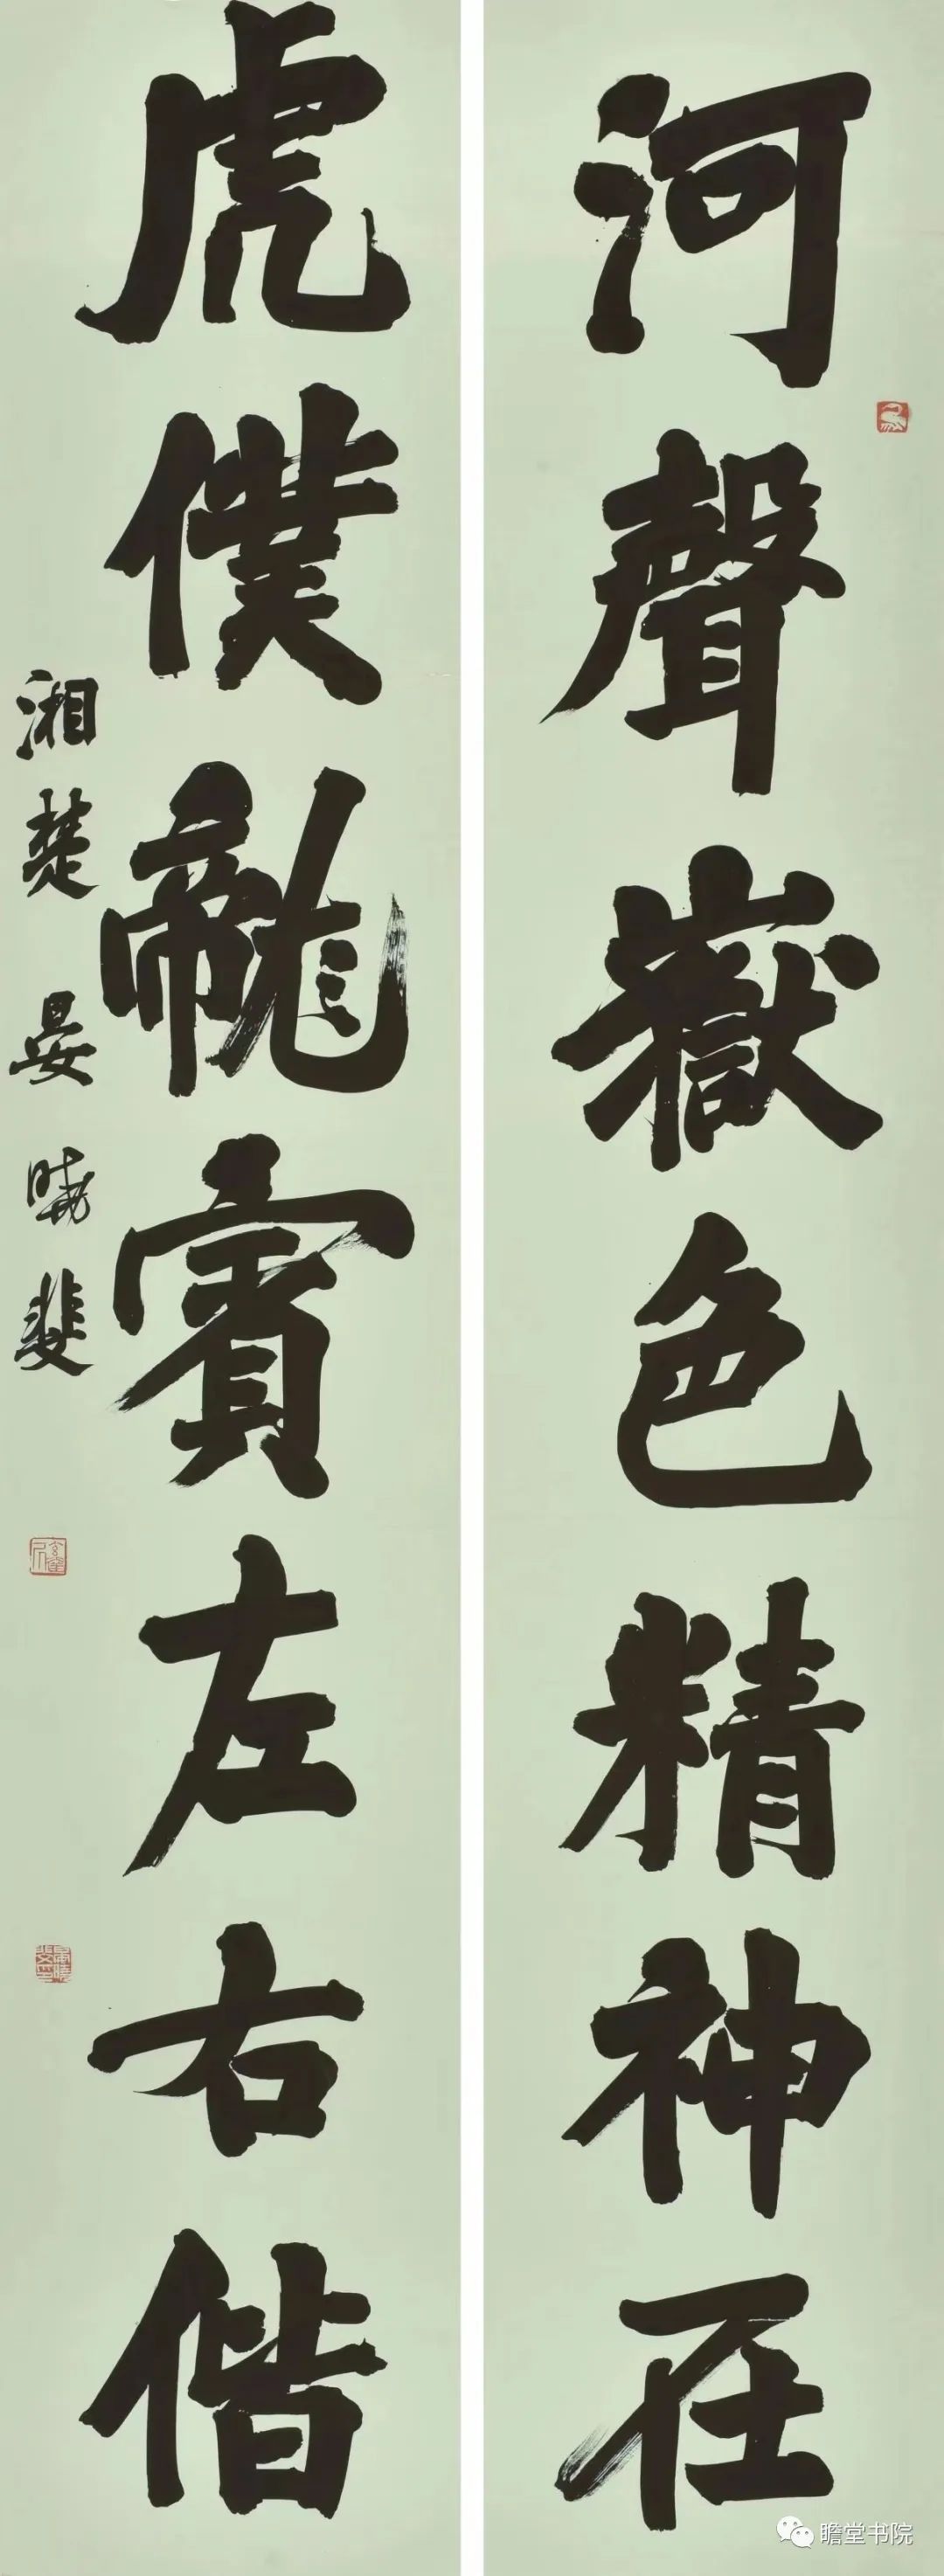 河聲嶽色精神在
虎僕龍賓左右偕
湘楚晏曉斐
瞻堂书院